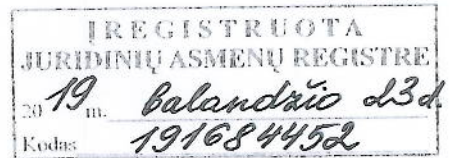 ĮREGISTRUOTA
JURIDINIŲ ASMENŲ REGISTRE
20 19 m. balandžio 23 d.
Kodas 191684452